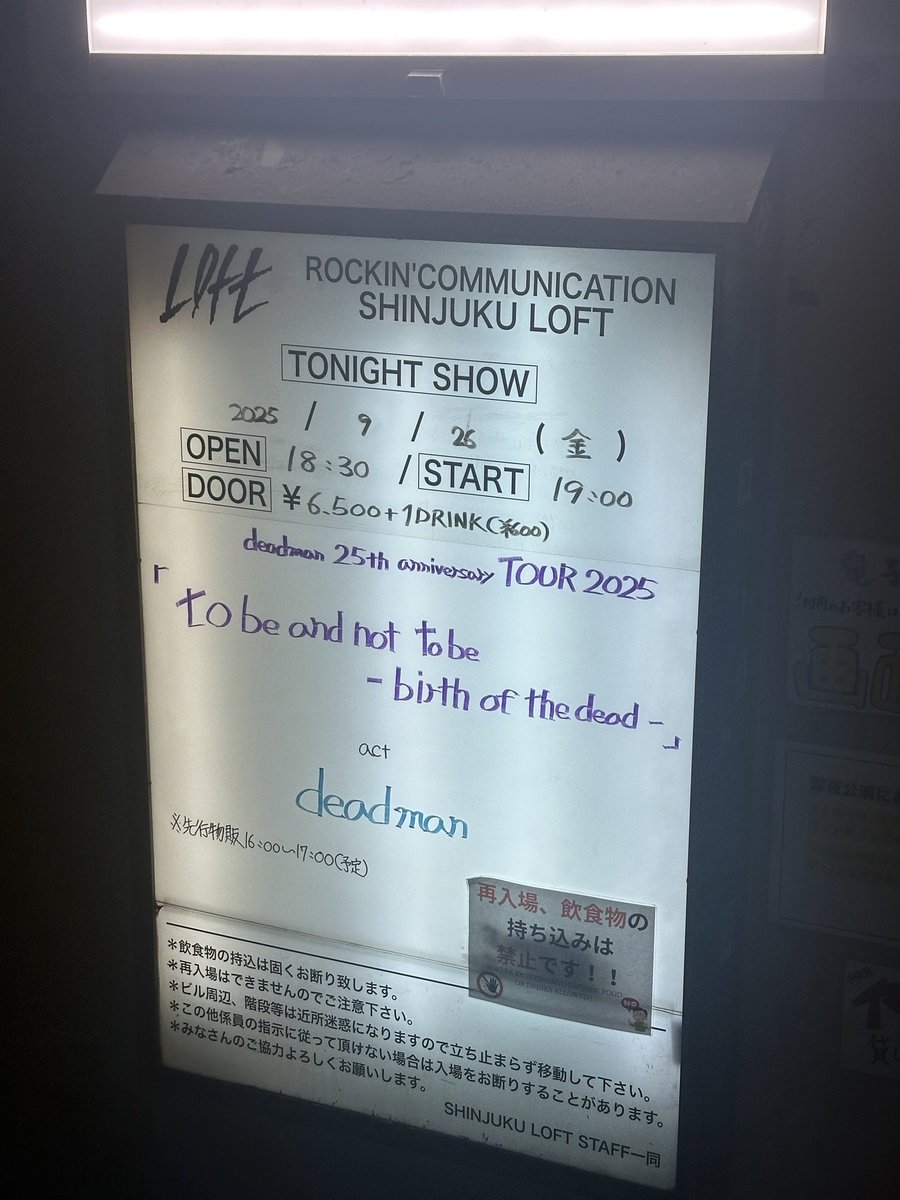 Loft
ROCKIN'COMMUNICATION
SHINJUKU LOFT
TONIGHT SHOW
2025 / 9 / 26 (金)
OPEN 18:30 / START 19:00
DOOR ¥6.500+1DRINK(¥600)
deadman 25th anniversary TOUR 2025
「to be and not to be
- birth of the dead -」
act
deadman
※先行物販16:00〜17:00(予定)
再入場、飲食物の
持ち込みは
禁止です！！
NO RE-ENTERING/OUTSIDE FOOD
OR DRINKS ALLOWED!!
NO
＊飲食物の持込は固くお断り致します。
＊再入場はできませんのでご注意下さい。
＊ビル周辺、階段等は近所迷惑になりますので立ち止まらず移動して下さい。
＊この他係員の指示に従って頂けない場合は入場をお断りすることがあります。
＊みなさんのご協力よろしくお願いします。
SHINJUKU LOFT STAFF一同